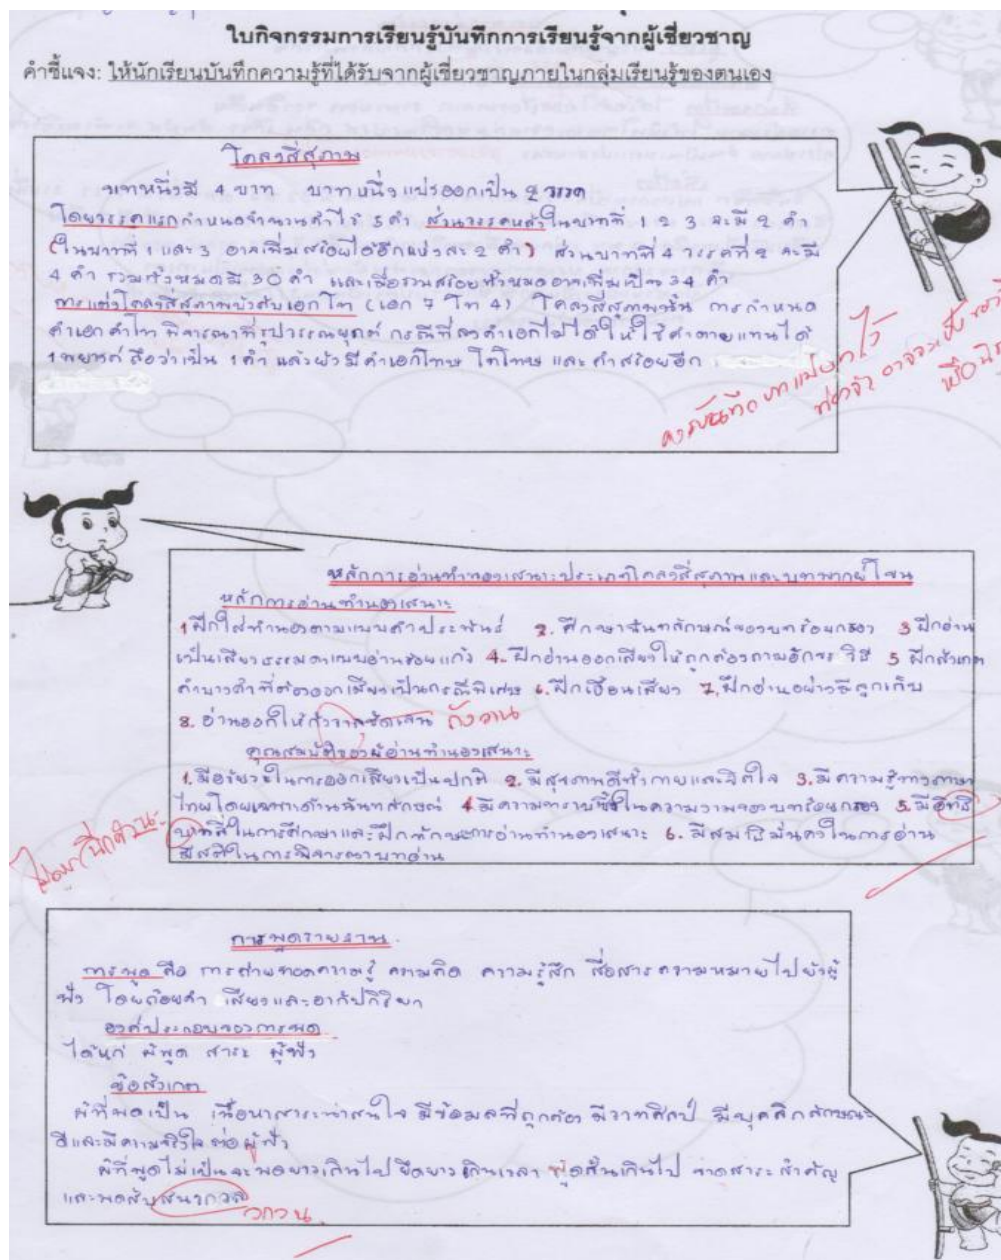 ใบกิจกรรมการเรียนรู้บันทึกการเรียนรู้จากผู้เชี่ยวชาญ
คำชี้แจง: ให้นักเรียนบันทึกความรู้ที่ได้รับจากผู้เชี่ยวชาญภายในกลุ่มเรียนรู้ของตนเอง
โคลงสี่สุภาพ
บทหนึ่งมี 4 บาท บาทหนึ่งแบ่งออกเป็น 2 วรรค
โดยวรรคแรกกำหนดจำนวนคำไว้ 5 คำ ส่วนวรรคหลังในบาทที่ 1 2 3 จะมี 2 คำ
(ในบาทที่ 1 และ 3 อาจเพิ่มสร้อยได้อีกแห่งละ 2 คำ) ส่วนบาทที่ 4 วรรคที่ 2 จะมี
4 คำ รวมทั้งหมดมี 30 คำ และเมื่อรวมสร้อยทั้งหมดอาจเพิ่มเป็น 34 คำ
การแต่งโคลงสี่สุภาพบังคับเอกโท (เอก 7 โท 4) โคลงสี่สุภาพนั้น การกำหนด
คำเอกคำโท พิจารณาที่รูปวรรณยุกต์ กรณีที่ลงคำเอกไม่ได้ ให้ใช้คำตายแทนได้
1 พยางค์ ถือว่าเป็น 1 คำ แล้วยังมีคำเอกโทษ โทโทษ และคำสร้อยอีก
หลักการอ่านทำนองเสนาะประเภทโคลงสี่สุภาพและบทพากย์โขน
หลักการอ่านทำนองเสนาะ
1 ฝึกใส่ทำนองตามแบบคำประพันธ์ 2. ศึกษาฉันทลักษณ์ของบทร้อยกรอง 3 ฝึกอ่าน
เป็นเสียงธรรมดาแบบอ่านร้อยแก้ว 4. ฝึกอ่านออกเสียงให้ถูกต้องตามอักขรวิธี 5 ฝึกสังเกต
คำบางคำที่ต้องออกเสียงเป็นกรณีพิเศษ 6. ฝึกเอื้อนเสียง 7. ฝึกอ่านอย่างมีลูกเก็บ
8. อ่านออกให้ ชัดเจน กังวาน
คุณสมบัติของผู้อ่านทำนองเสนาะ
1. มีอวัยวะในการออกเสียงเป็นปกติ 2. มีสุขภาพดีทั้งกายและจิตใจ 3. มีความรู้ทางภาษา
ไทยโดยเฉพาะด้านฉันทลักษณ์ 4 มีความซาบซึ้งในความงามของบทร้อยกรอง 5. มีอิทธิ
บาทสี่ในการศึกษาและฝึกทักษะการอ่านทำนองเสนาะ 6. มีสมาธิมั่นคงในการอ่าน
มีสติในการพิจารณาบทอ่าน
การพูดรายงาน
การพูด คือ การถ่ายทอดความรู้ ความคิด ความรู้สึก สื่อสารความหมายไปยังผู้
ฟัง โดยถ้อยคำ เสียงและอากัปกิริยา
องค์ประกอบของการพูด
ได้แก่ ผู้พูด สาระ ผู้ฟัง
ข้อสังเกต
ผู้ที่พูดเป็น เนื้อหาสาระน่าสนใจ มีข้อมูลที่ถูกต้อง มีวาทศิลป์ มีบุคลิกลักษณะ
ดีและมีความจริงใจต่อผู้ฟัง
ผู้ที่พูดไม่เป็นจะพูดยาวเกินไป ยืดยาวเกินเวลา พูดสั้นเกินไป ขาดสาระสำคัญ
และพูดสับสน วกวน